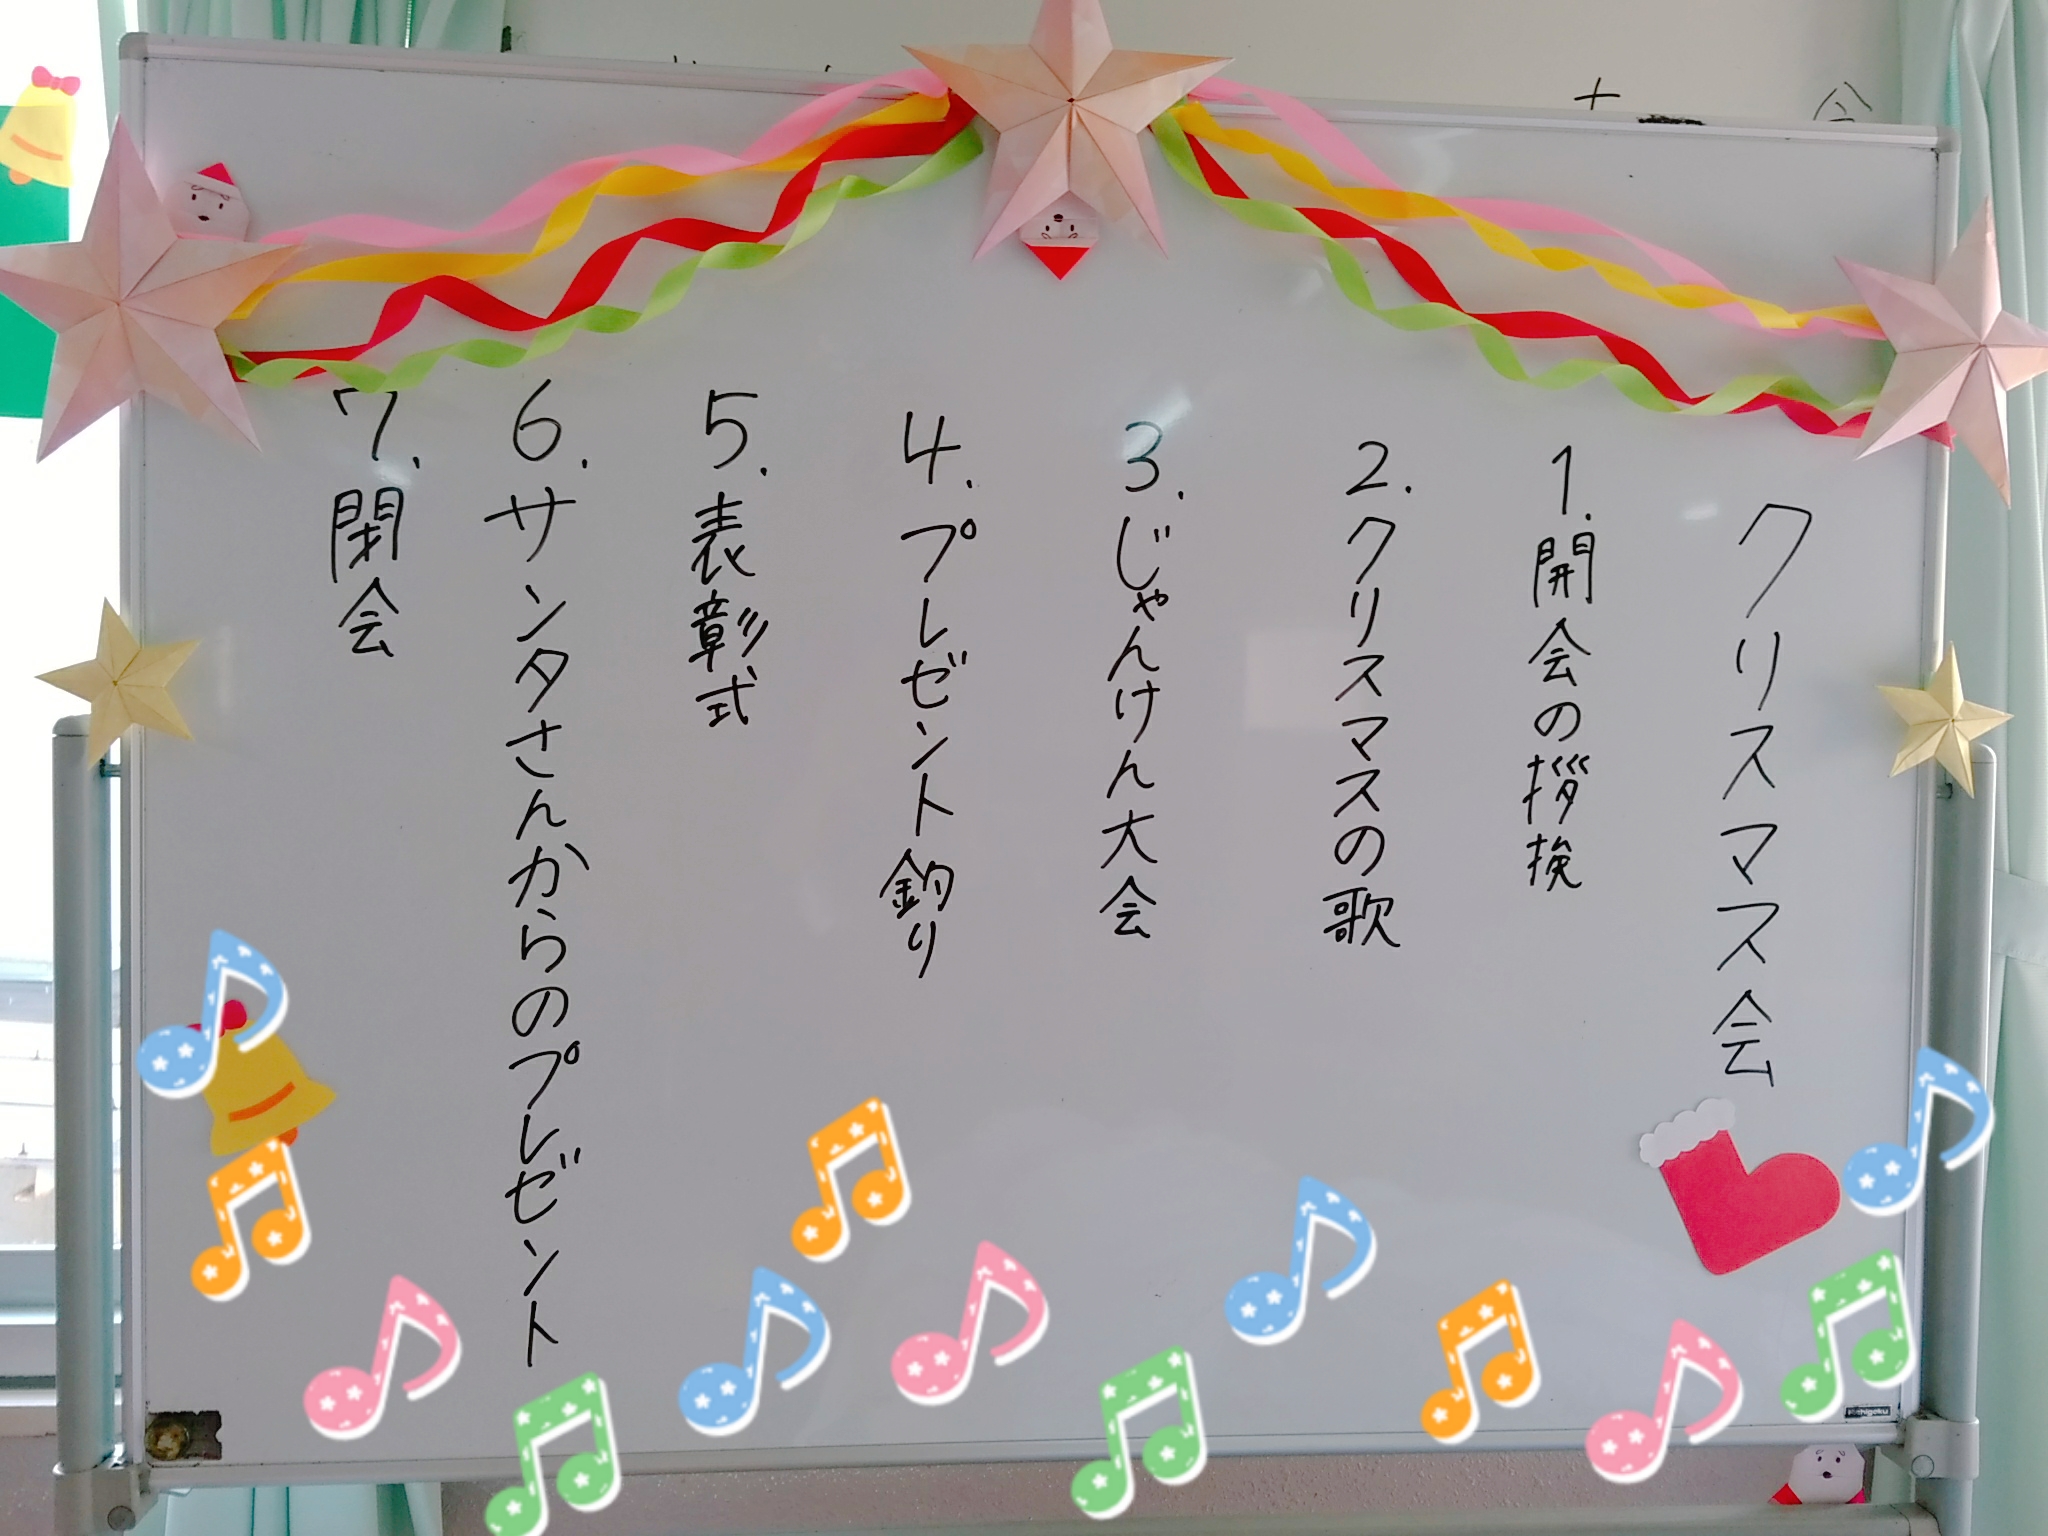 クリスマス会
1.開会の挨挨
2.クリスマスの歌
3.じゃんけん大会
4.プレゼント釣り
5.表彰式
6.サンタさんからのプレゼント
7.閉会